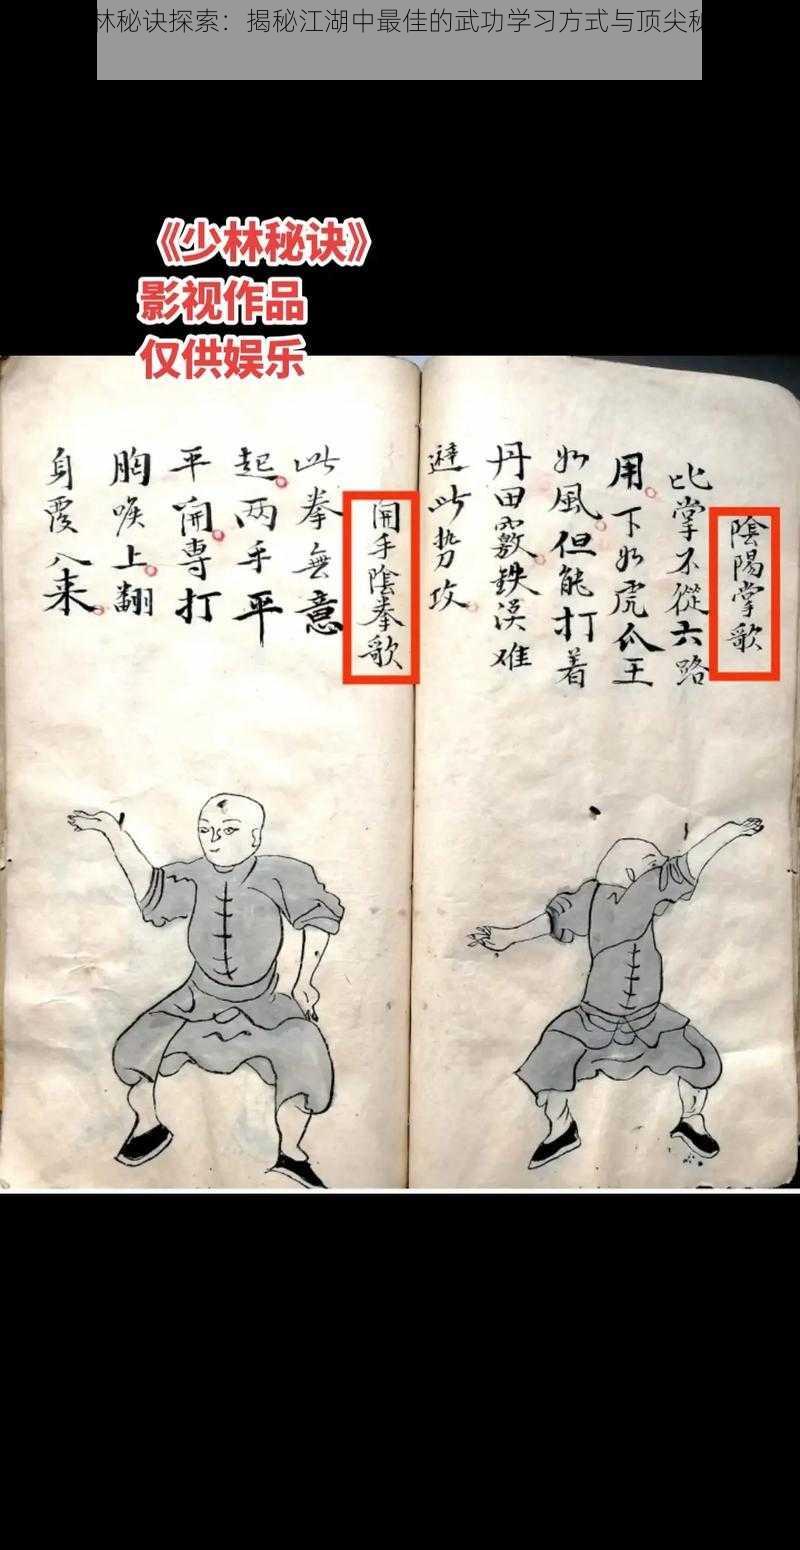 林秘诀探索：揭秘江湖中最佳的武功学习方式与顶尖秘
《少林秘诀》
影视作品
仅供娱乐
陰陽掌歌
比掌不從六路
用下如虎爪王
如風但能打着
丹田竅鉄漢难
避此势攻
開手陰拳歌
此拳無意
起两手平
平開專打
胸喉上翻
身覆入来